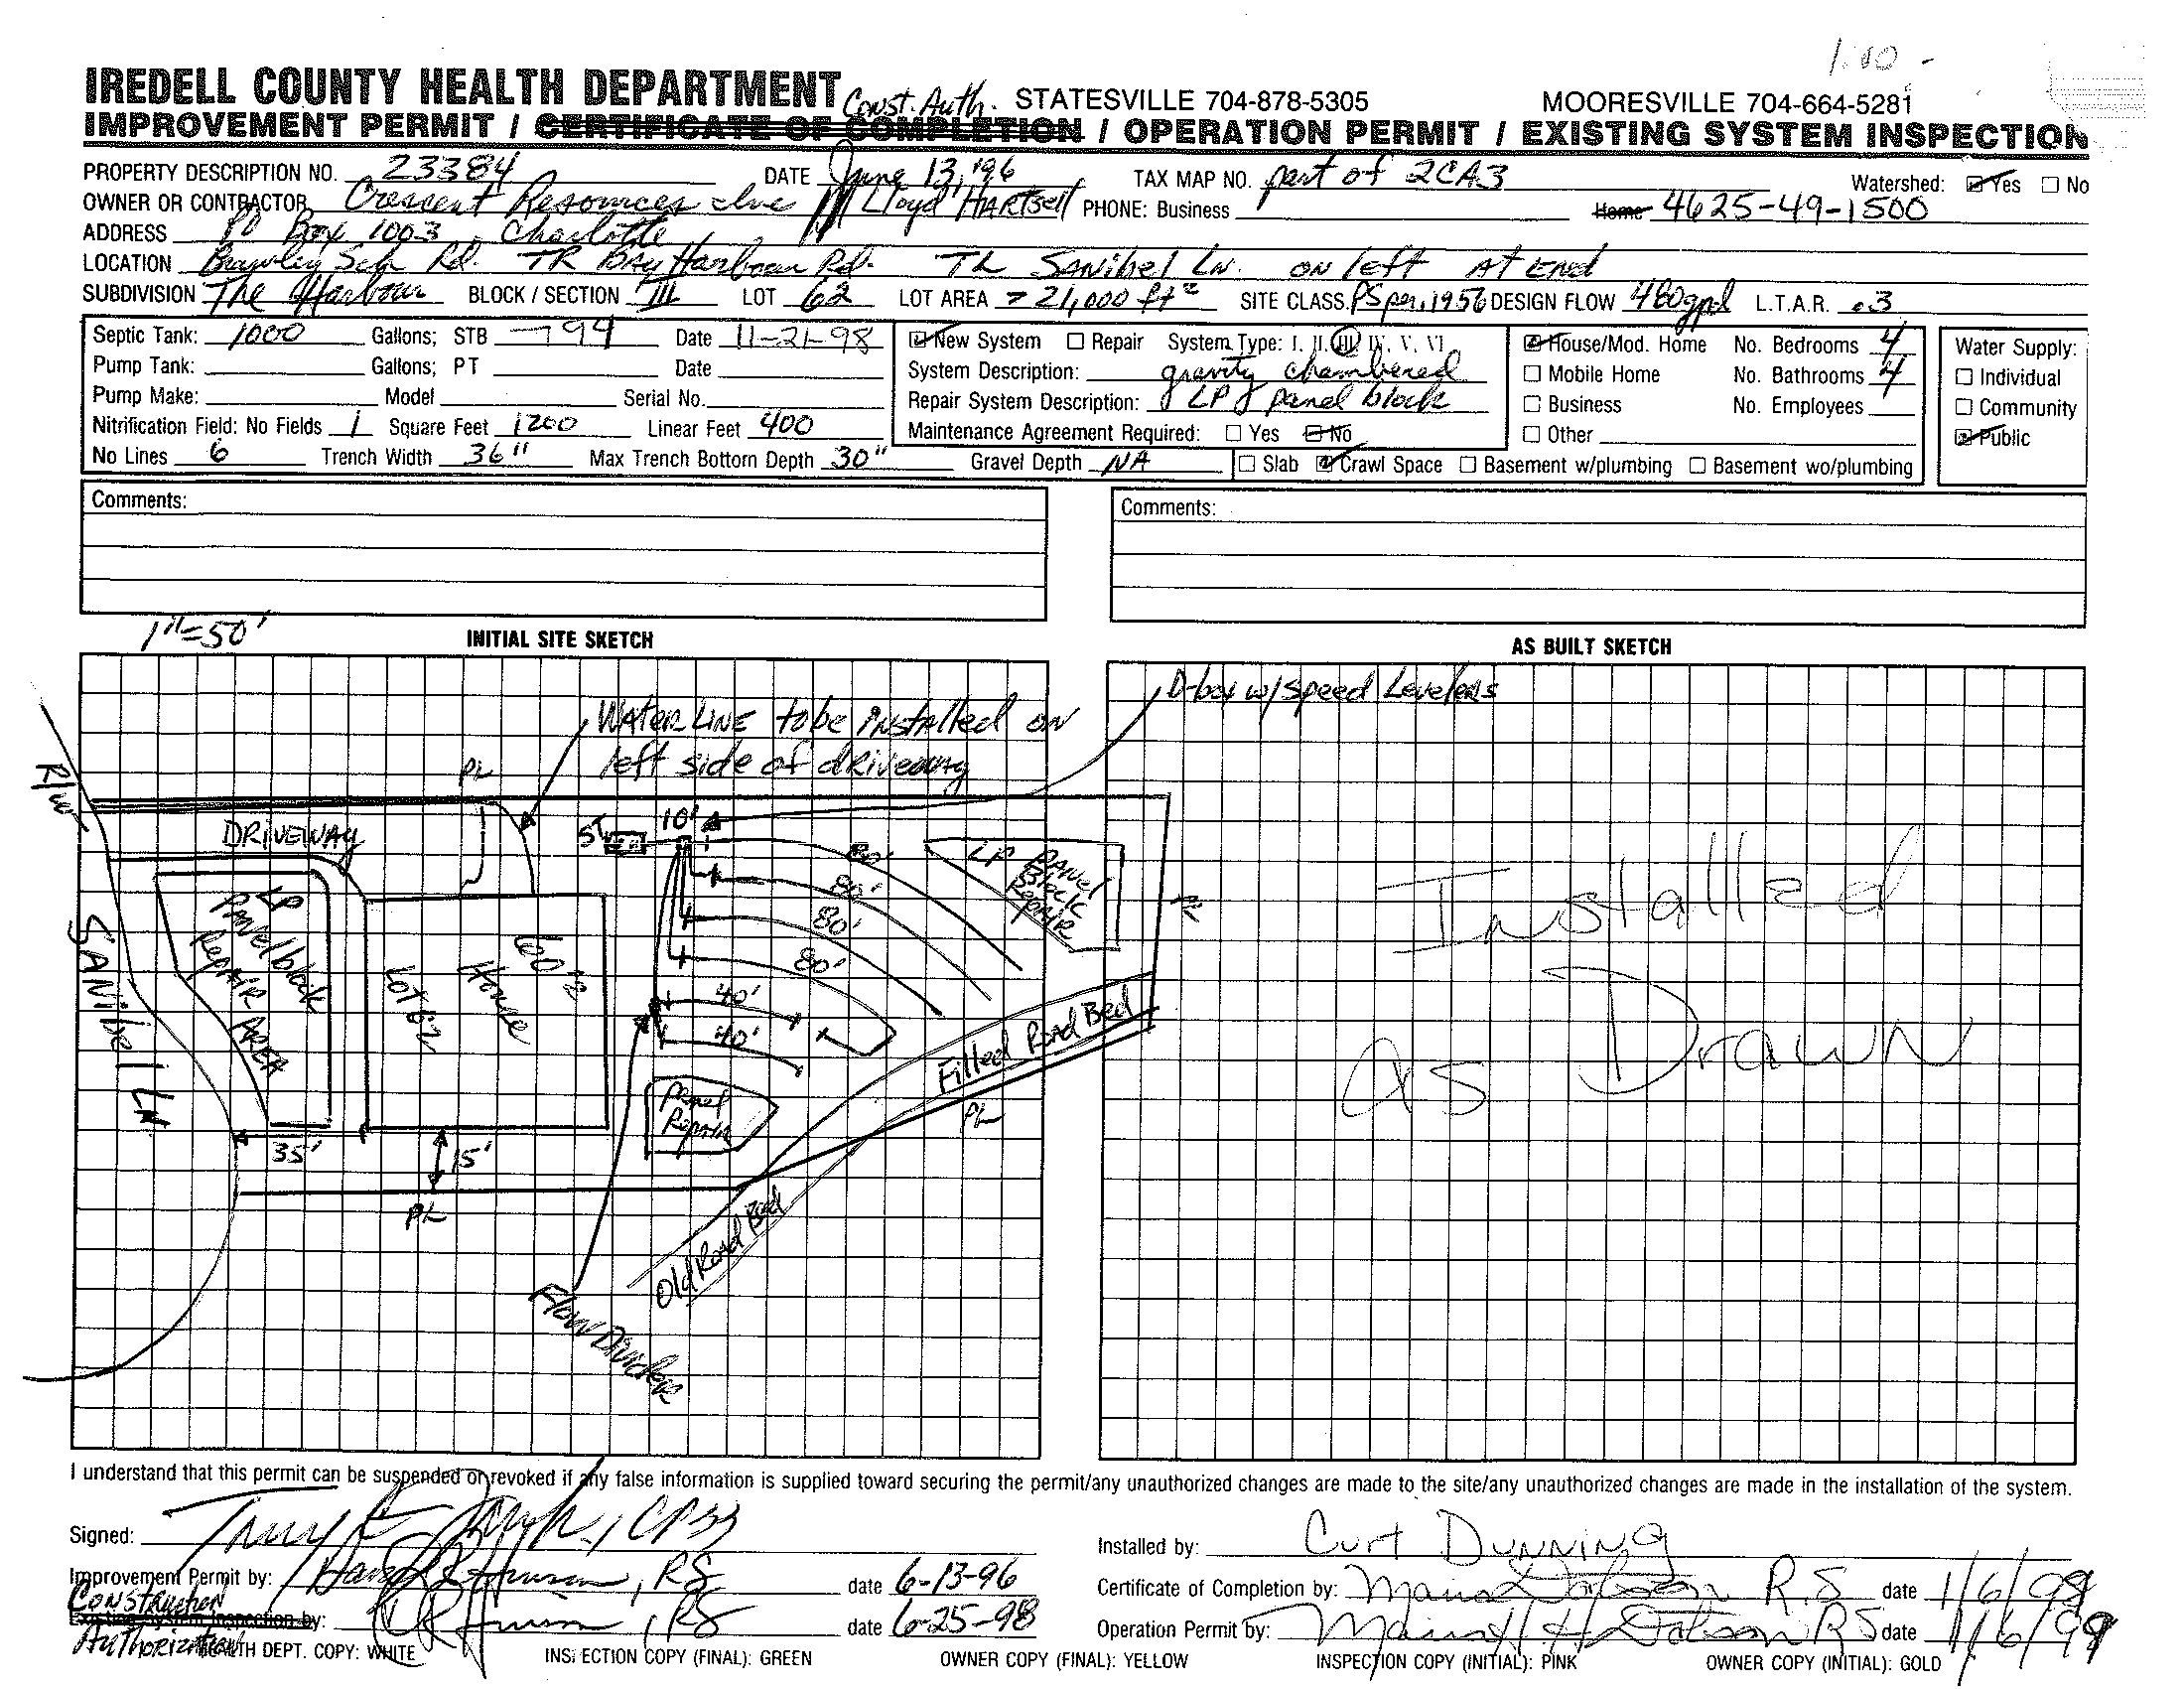 1:00 -
IREDELL COUNTY HEALTH DEPARTMENT Const. Auth. STATESVILLE 704-878-5305 MOORESVILLE 704-664-5281
IMPROVEMENT PERMIT / CERTIFICATE OF COMPLETION / OPERATION PERMIT / EXISTING SYSTEM INSPECTION
PROPERTY DESCRIPTION NO. 23384 DATE June 13, '96 TAX MAP NO. part of 2CA3 Watershed: Yes No
OWNER OR CONTRACTOR Crescent Resources Inc Lloyd HARTSell PHONE: Business Home 4625-49-1500
ADDRESS PO Box 1003 Charlotte
LOCATION Brawley Sch Rd. TR BAY Harbour Rd. TL SANibel LN. ON left At END
SUBDIVISION The Harbour BLOCK / SECTION III LOT 62 LOT AREA > 21,000 ft² SITE CLASS. PS per .1956 DESIGN FLOW 480gpd L.T.A.R. .3
Septic Tank: 1000 Gallons; STB 794 Date 11-21-98
Pump Tank: Gallons; PT Date
Pump Make: Model Serial No.
Nitrification Field: No Fields 1 Square Feet 1200 Linear Feet 400
No Lines 6 Trench Width 36" Max Trench Bottom Depth 30" Gravel Depth NA
New System Repair System Type: I, II, III, IV, V, VI
System Description: gravity chambered
Repair System Description: LP panel block
Maintenance Agreement Required: Yes No
House/Mod. Home No. Bedrooms 4
Mobile Home No. Bathrooms 4
Business No. Employees
Other
Slab Crawl Space Basement w/plumbing Basement wo/plumbing
Water Supply:
Individual
Community
Public
Comments:
Comments:
1"=50'
INITIAL SITE SKETCH
AS BUILT SKETCH
D-box w/ Speed Levelers
WATER LINE to be installed ON
left side of driveway
R/W
PL
DRIVEWAY
ST
10'
80'
80'
80'
80'
40'
40'
LP PANel
Block
Repair
PL
LP
PANel block
RepAIR AREA
SANibel LN
LOT 62
House
Panel
Repair
Filled Road Bed
PL
35'
15'
PL
Old Road Bed
Flow Divider
Installed
as Drawn
I understand that this permit can be suspended or revoked if any false information is supplied toward securing the permit/any unauthorized changes are made to the site/any unauthorized changes are made in the installation of the system.
Signed:
Installed by: Curt Dunning
Improvement Permit by: , RS date 6-13-96
Certificate of Completion by: R.S date 1/6/99
Construction
Existing System Inspection by: , RS date 6-25-98
Authorization
Operation Permit by: RS date 1/6/99
HEALTH DEPT. COPY: WHITE INSPECTION COPY (FINAL): GREEN OWNER COPY (FINAL): YELLOW INSPECTION COPY (INITIAL): PINK OWNER COPY (INITIAL): GOLD